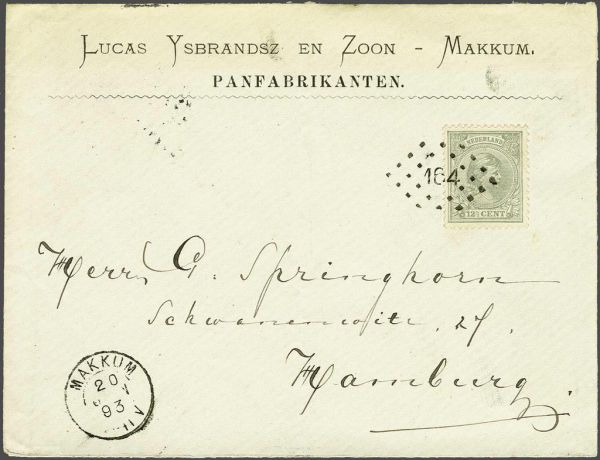 Lucas Ysbrandsz en Zoon - Makkum.
PANFABRIKANTEN.
NEDERLAND
164
12½ CENT
Herrn G. Springhorn
27.
Hamburg
MAKKUM
20
93